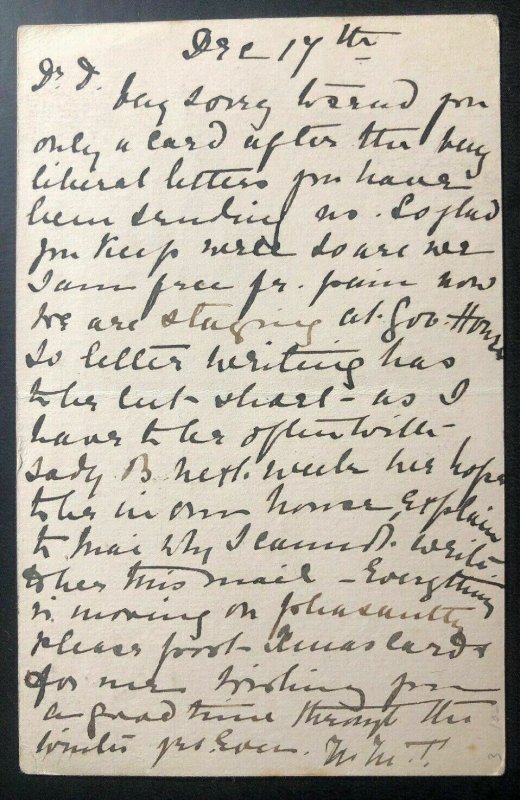 Dec 17th
Dr. D.
Very sorry to send you
only a card after the very
liberal letters you have
been sending us. So glad
you keep well so are we
I am free fr. pain now
We are staying at Gov. House
so letter writing has
to be cut short - as I
have to be often with
Lady B next week we hope
to be in our house, explain
to Mai why I cannot write
to her this mail - Everything
is moving on pleasantly
Please post Xmas cards
for me wishing you
a good time through the
winter yrs. Ever. M.M.T.